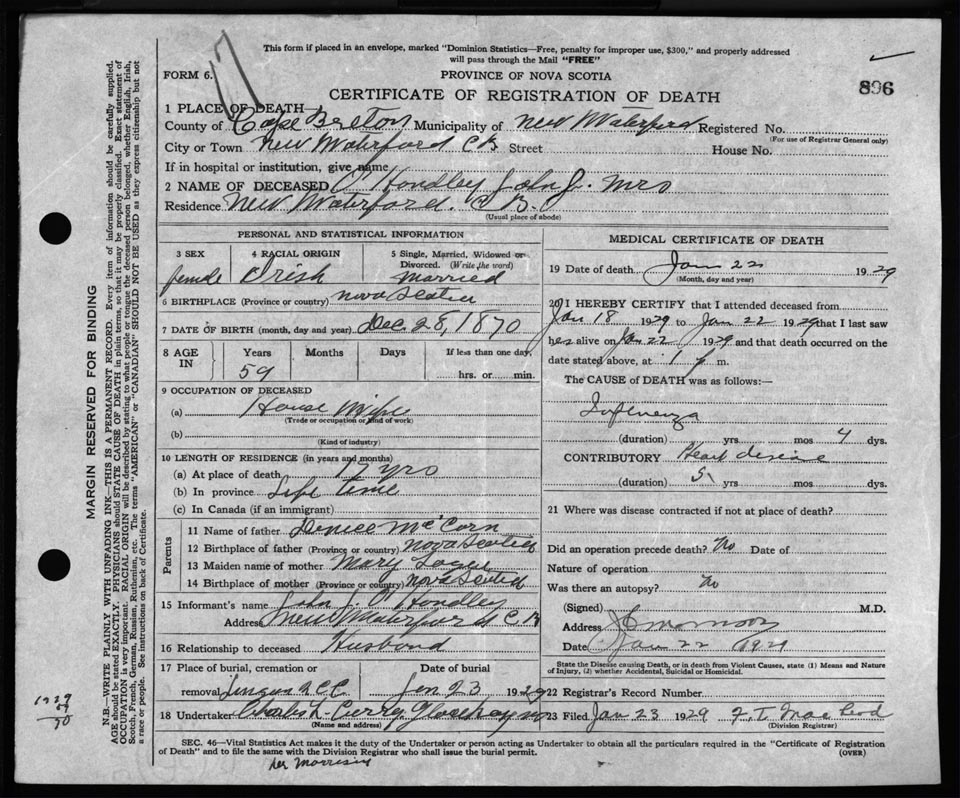 This form if placed in an envelope, marked "Dominion Statistics—Free, penalty for improper use, $300," and properly addressed
will pass through the Mail "FREE"
17
FORM 6. PROVINCE OF NOVA SCOTIA
896
CERTIFICATE OF REGISTRATION OF DEATH
1 PLACE OF DEATH
County of Cape Breton Municipality of New Waterford Registered No.
(For use of Registrar General only)
City or Town New Waterford C B Street House No.
If in hospital or institution, give name
2 NAME OF DECEASED O'Handley John J. Mrs
Residence New Waterford. C B.
(Usual place of abode)
PERSONAL AND STATISTICAL INFORMATION
3 SEX 4 RACIAL ORIGIN 5 Single, Married, Widowed or
Divorced. (Write the word)
female Irish Married
6 BIRTHPLACE (Province or country) Nova Scotia
7 DATE OF BIRTH (month, day and year) Dec. 28, 1870
8 AGE IN Years Months Days If less than one day,
59 hrs. or min.
9 OCCUPATION OF DECEASED
(a) House Wife
(Trade or occupation or kind of work)
(b)
(Kind of industry)
10 LENGTH OF RESIDENCE (in years and months)
(a) At place of death 17 yrs
(b) In province Life time
(c) In Canada (if an immigrant)
Parents
11 Name of father McCorn
12 Birthplace of father (Province or country) Nova Scotia
13 Maiden name of mother Mary
14 Birthplace of mother (Province or country) Nova Scotia
15 Informant's name John J. O'Handley
Address New Waterford C B
16 Relationship to deceased Husband
17 Place of burial, cremation or Date of burial
removal Jan 23 1929
18 Undertaker Charles L. Curry, Glace Bay
(Name and address)
MEDICAL CERTIFICATE OF DEATH
19 Date of death Jan 22 1929
(Month, day and year)
20 I HEREBY CERTIFY that I attended deceased from
Jan 18 1929 to Jan 22 1929 that I last saw
her alive on Jan 22 1929 and that death occurred on the
date stated above, at 1 p m.
The CAUSE of DEATH was as follows:—
Influenza
(duration) yrs mos 4 dys.
CONTRIBUTORY Heart disease
(duration) 5 yrs mos dys.
21 Where was disease contracted if not at place of death?
Did an operation precede death? No Date of
Nature of operation
Was there an autopsy? No
(Signed) M.D.
Address
Date Jan 22 1929
State the Disease causing Death, or in death from Violent Causes, state (1) Means and Nature
of Injury, (2) whether Accidental, Suicidal or Homicidal.
22 Registrar's Record Number
23 Filed Jan 23 1929 F. T. MacLeod
(Division Registrar)
SEC. 46—Vital Statistics Act makes it the duty of the Undertaker or person acting as Undertaker to obtain all the particulars required in the "Certificate of Registration
of Death" and to file the same with the Division Registrar who shall issue the burial permit. (OVER)
MARGIN RESERVED FOR BINDING
N.B.—WRITE PLAINLY WITH UNFADING INK—THIS IS A PERMANENT RECORD. Every item of information should be carefully supplied.
AGE should be stated EXACTLY. PHYSICIANS should STATE CAUSE OF DEATH in plain terms, so that it may be properly classified. Exact statement of
OCCUPATION is very important. RACIAL ORIGIN will be described by stating to what people or tongue the deceased person belonged, whether English, Irish,
Scotch, French, German, Russian, Ruthenian, etc. The terms "AMERICAN" or "CANADIAN" SHOULD NOT BE USED as they express citizenship but not
a race or people. See instructions on back of Certificate.
1929